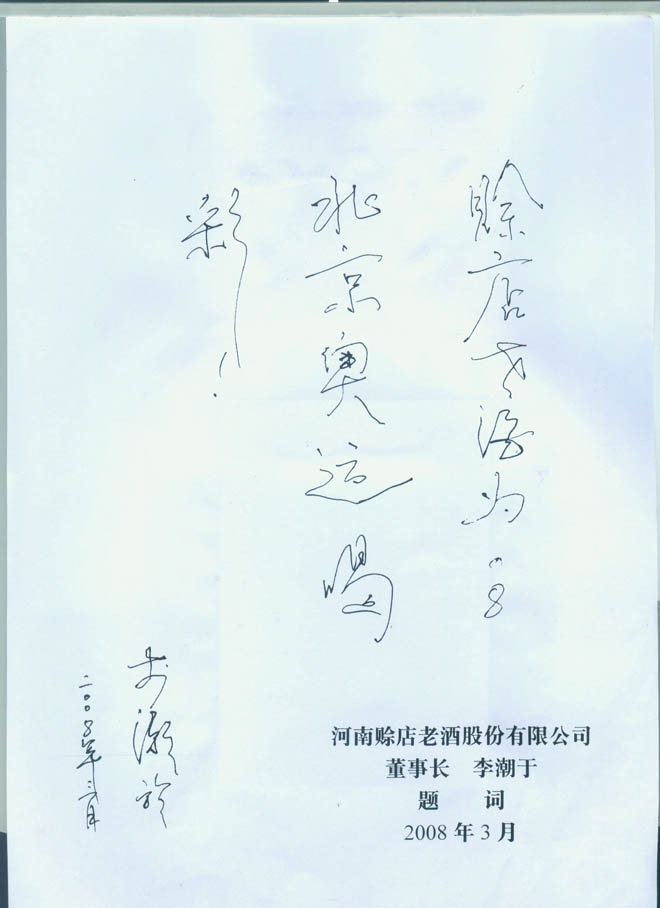 赊店老酒为08
北京奥运喝
彩！
李潮于
二00八年三月
河南赊店老酒股份有限公司
董事长 李潮于
题 词
2008 年 3 月